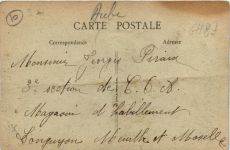 Aube
CARTE POSTALE
Correspondance
Adresse
Monsieur Georges Pirard
3e section de C. O. A.
Magasin d'habillement
Longuyon Meurthe et Moselle